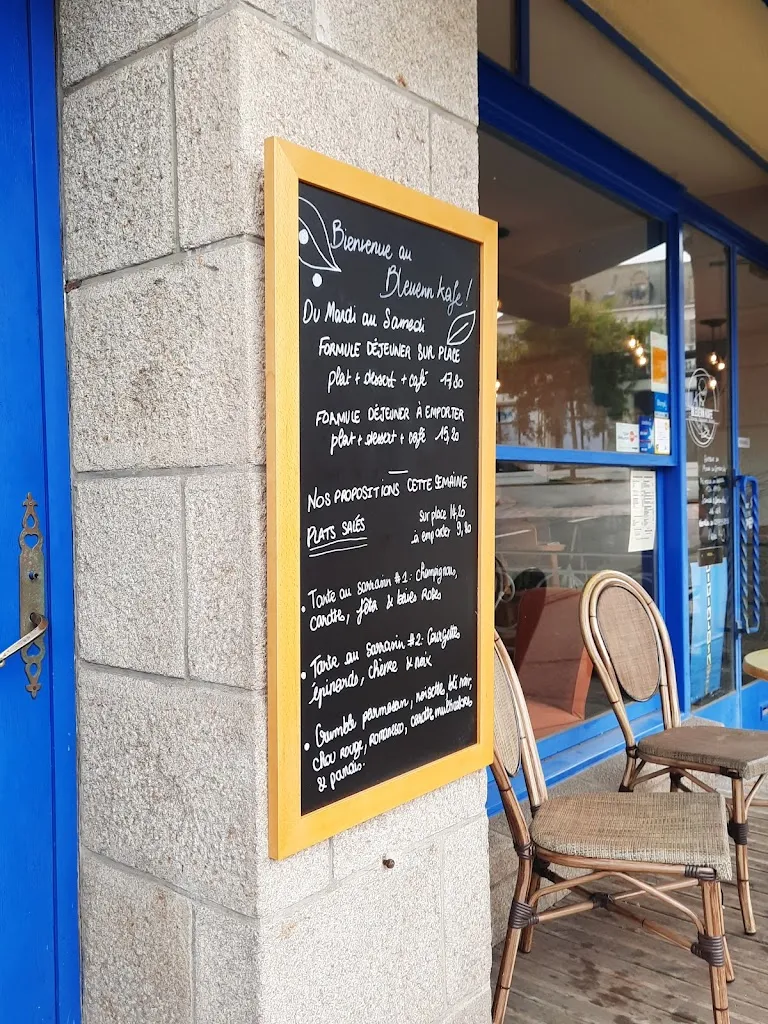 Bienvenue au
Bleuenn Kafe !
Du Mardi au Samedi
FORMULE DÉJEUNER SUR PLACE
plat + dessert + café 17,80
FORMULE DÉJEUNER À EMPORTER
plat + dessert + café 15,20
NOS PROPOSITIONS CETTE SEMAINE
PLATS SALÉS
sur place 14,20
à emporter 9,80
• Tarte au sarrasin #1 : Champignons,
carotte, féta & baies Roses
• Tarte au sarrasin #2 : Courgettes
épinards, chèvre & noix
• Crumble parmesan, noisette, blé noir,
chou rouge, romanesco, carotte multicolores
& panais.
BLEUENN KAFE